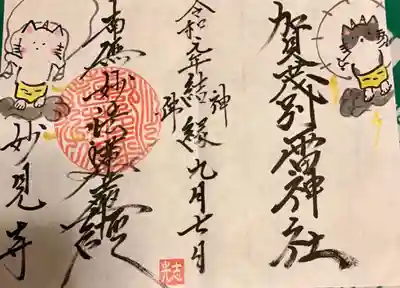 賀茂別雷神社
令和元年結縁九月七日
神
佛
南無妙法蓮華経
妙見寺